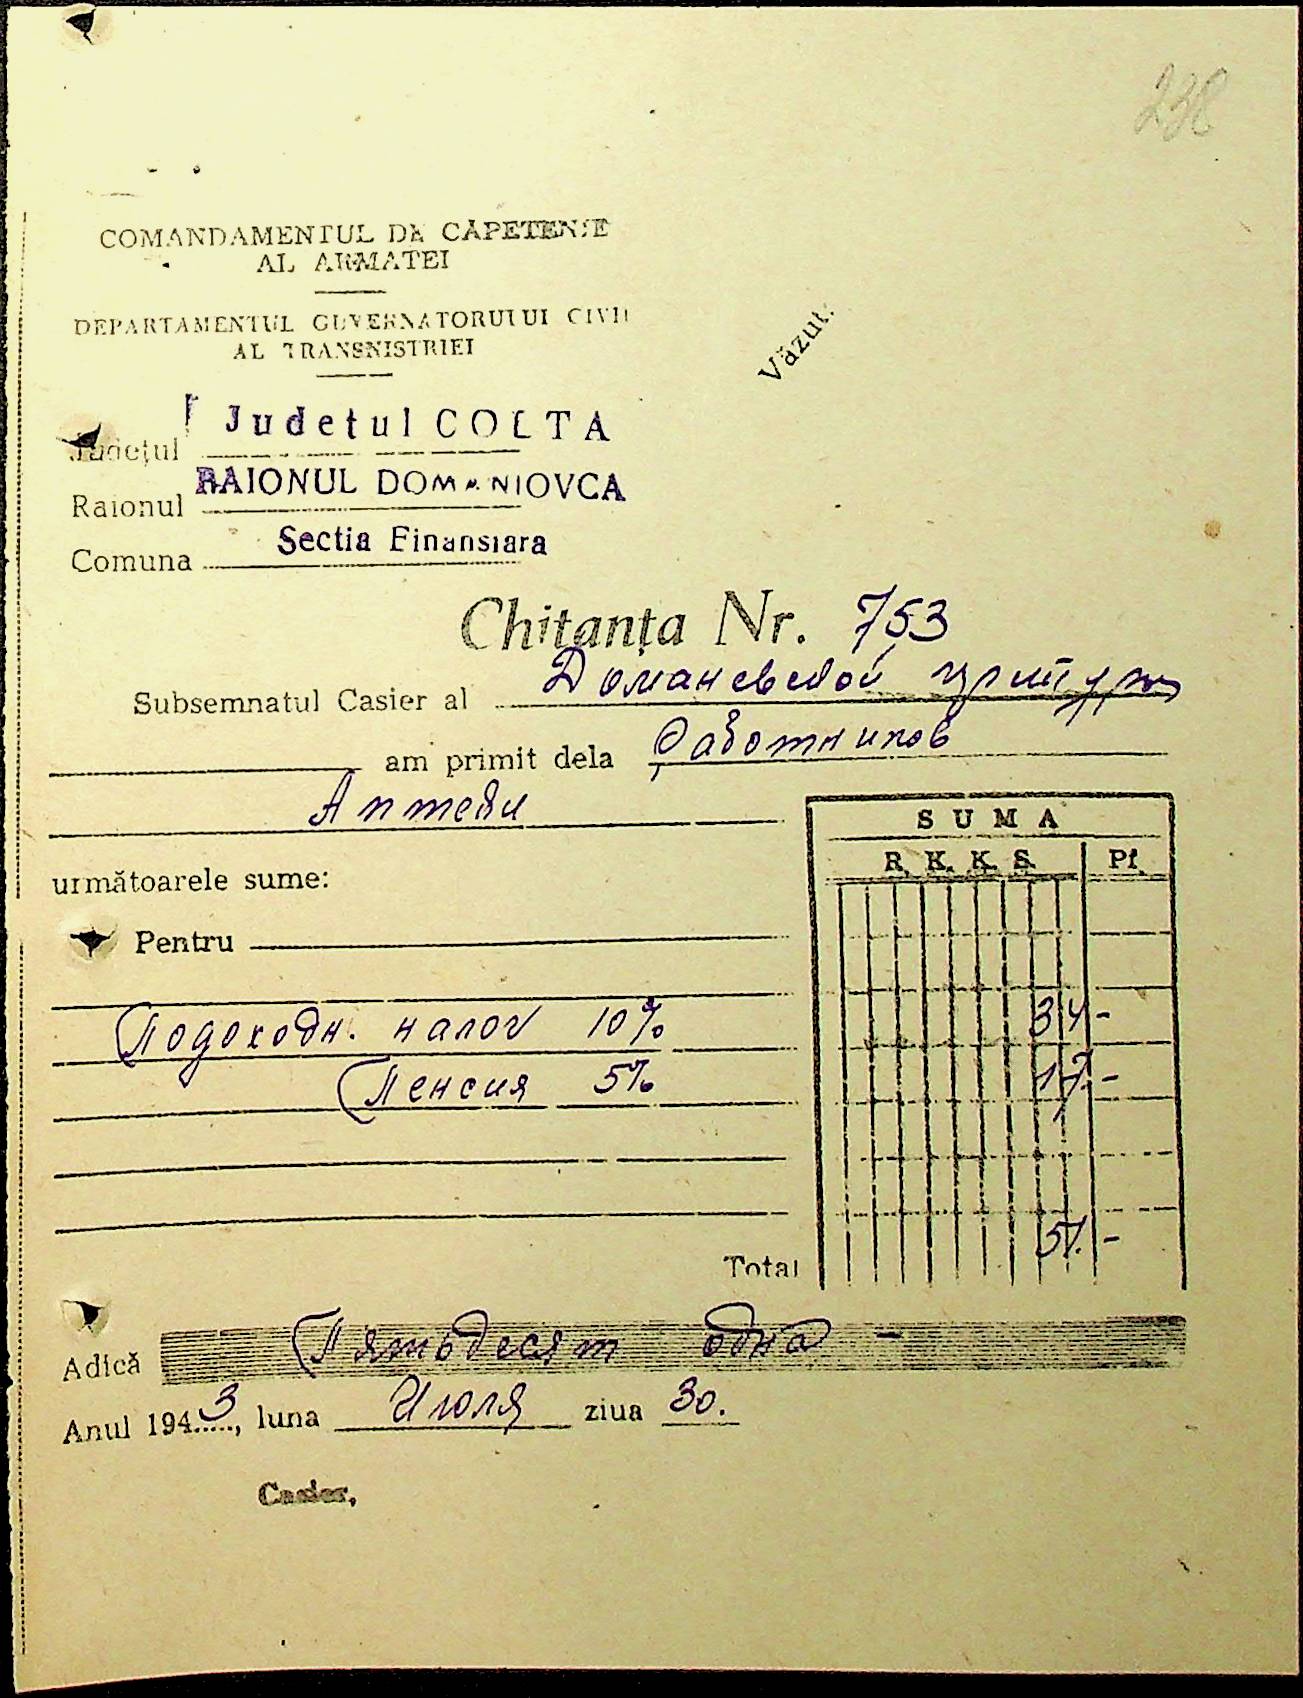 238
COMANDAMENTUL DE CĂPETENIE
AL ARMATEI
DEPARTAMENTUL GUVERNATORULUI CIVIL
AL TRANSNISTRIEI
Văzut.
Județul Judeţul COLTA
Raionul RAIONUL DOMANIOVCA
Comuna Sectia Finansiara
Chitanța Nr. 753
Subsemnatul Casier al Доманевской
am primit dela Работников
Аптеки
SUMA
următoarele sume:
R. K. K. S. Pf.
Pentru
Подоходн. налог 10% 34 -
Пенсия 5% 17. -
Total 51. -
Adică Пятьдесят одна -
Anul 1943, luna Июля ziua 30.
Casier,